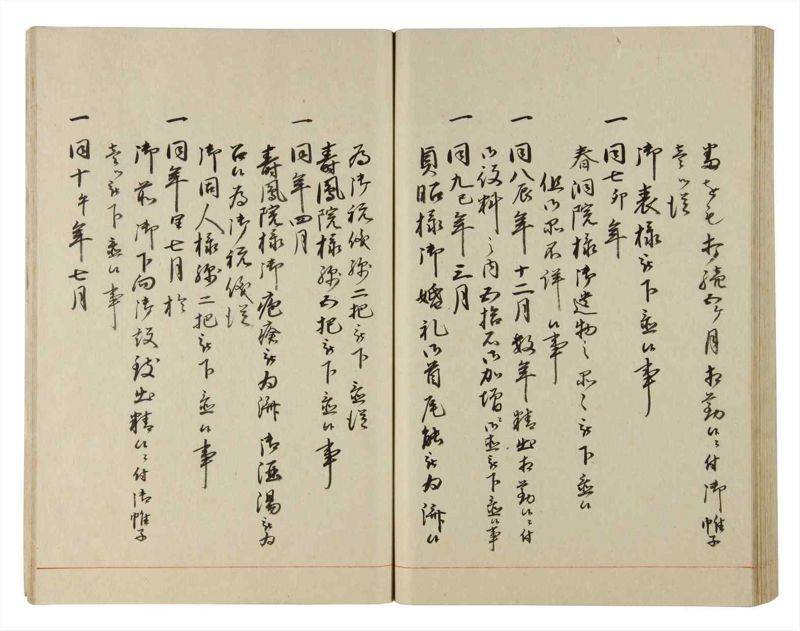 当春も打続五ヶ月相勤候ニ付御帷子
壱ツ従
御表様被下置候事
一同七卯年
春洞院様御遺物之品々被下置候
但御品不詳候事
一同八辰年十二月数年精出相勤候ニ付
御役料之内五拾石御加増御直被下置候事
一同九巳年三月
貞昭様御婚礼御首尾能被為済候
為御祝儀綿二把被下置従
寿鳳院様綿五把被下置候事
一同年四月
寿鳳院様御疱瘡被為済御酒湯被為
召候為御祝儀従
御同人様綿二把被下置候事
一同年七月於
御前御下向御設敷出精候ニ付御帷子
壱ツ被下置候事
一同十午年七月